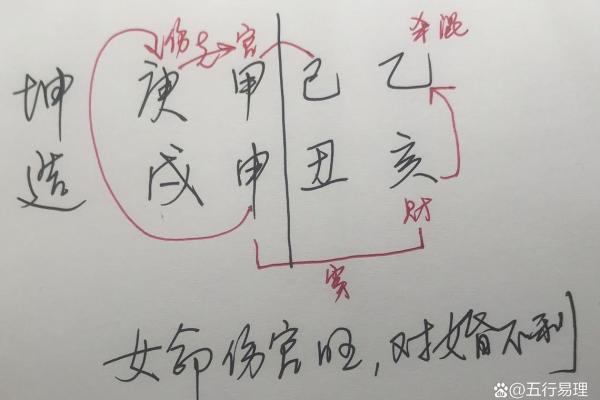 伤克官 杀混
坤 庚 甲 己 乙
造 戌 申 丑 亥
财
害
女命伤官旺，对婚不利
五行易理